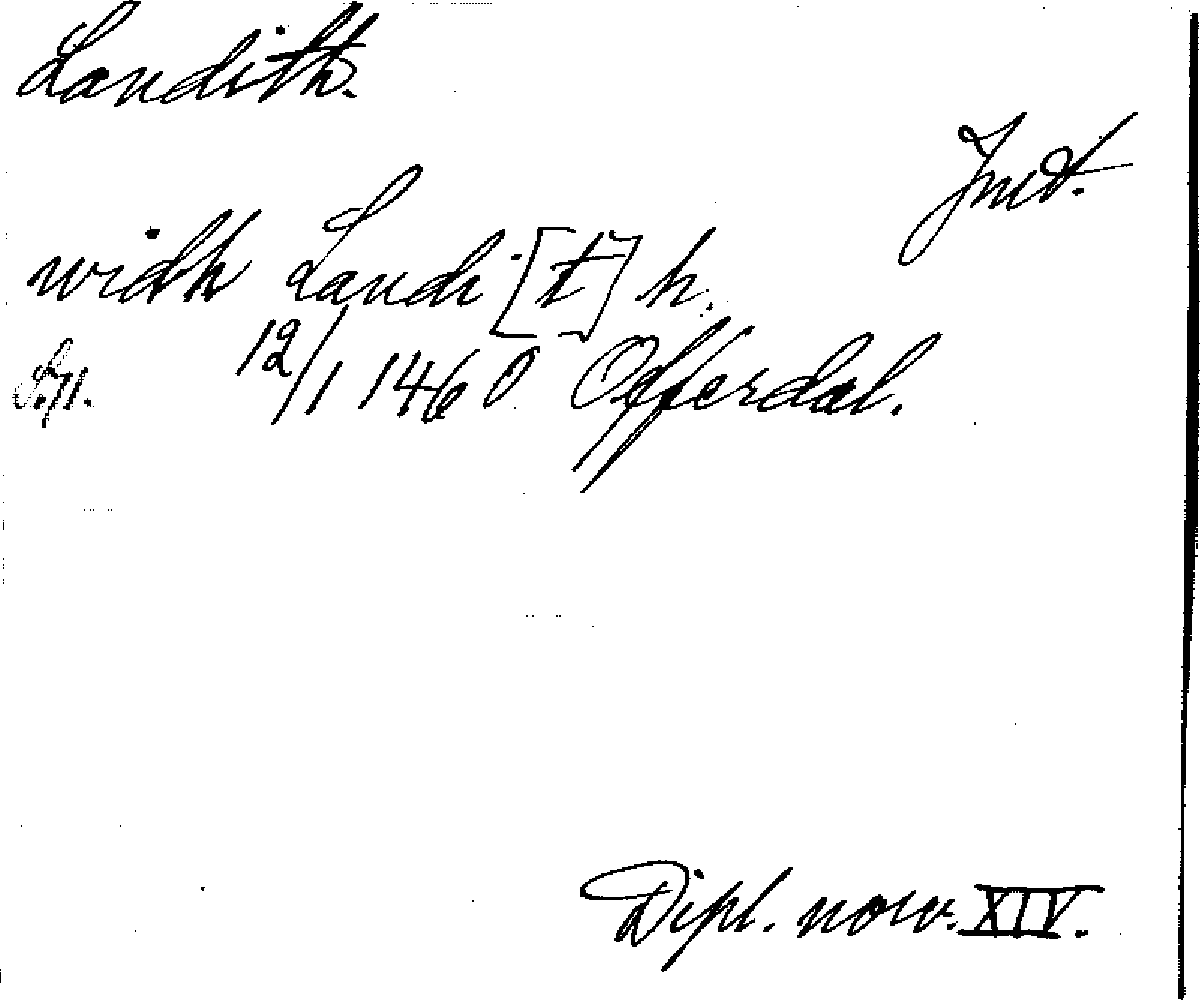 Landith.
Jmt.
widh Landi[t]h.
S. 71. 12/1 1460 Offerdal.
Dipl. norv. XIV.